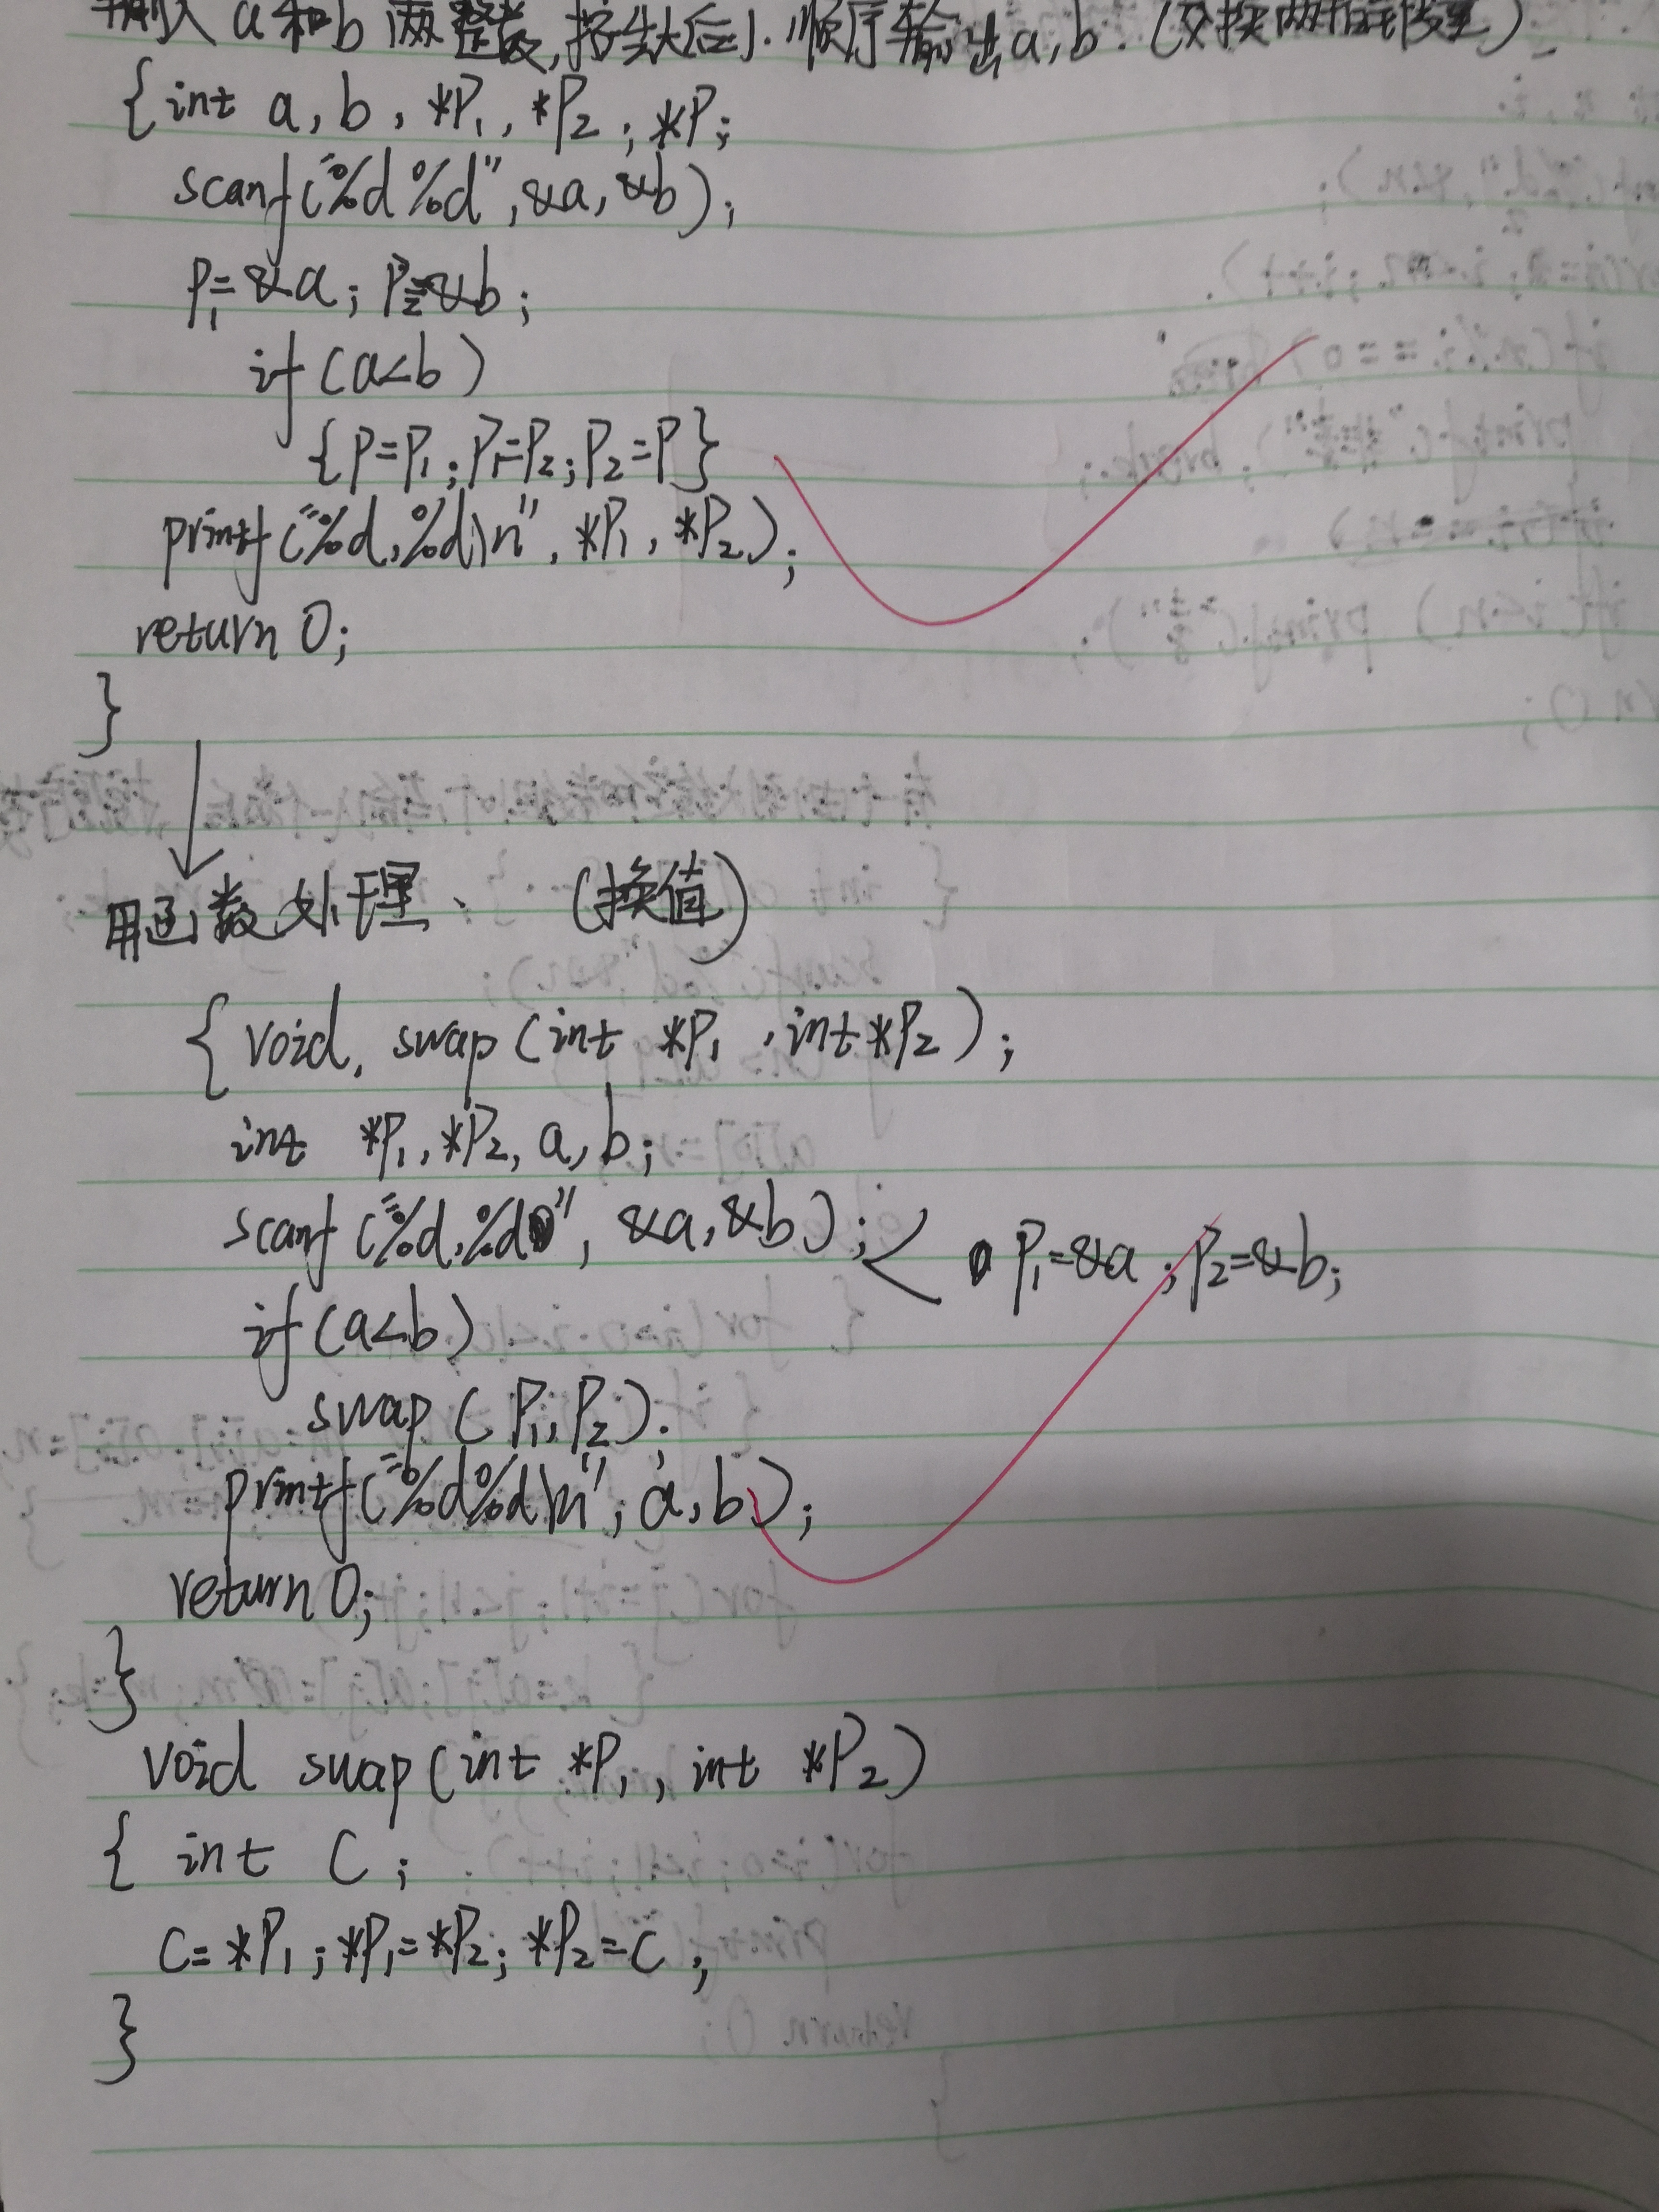 输入a和b两整数,按先大后小顺序输出a,b.(交换两指针变量)
{int a,b,*P1,*P2;*P;
scanf("%d%d",&a,&b);
P1=&a;P2=&b;
if(a<b)
{P=P1;P1=P2;P2=P}
printf("%d,%d\n",*P1,*P2);
return 0;
}
用函数处理、(换值)
{void, swap(int *P1,int*P2);
int *P1,*P2,a,b;
scanf("%d,%d",&a,&b);< P1=&a;P2=&b;
if(a<b)
swap(P1,P2);
printf("%d%d\n";a,b);
return 0;
}
void swap(int *P1,int *P2)
{ int C;
C=*P1;*P1=*P2;*P2=C;
}